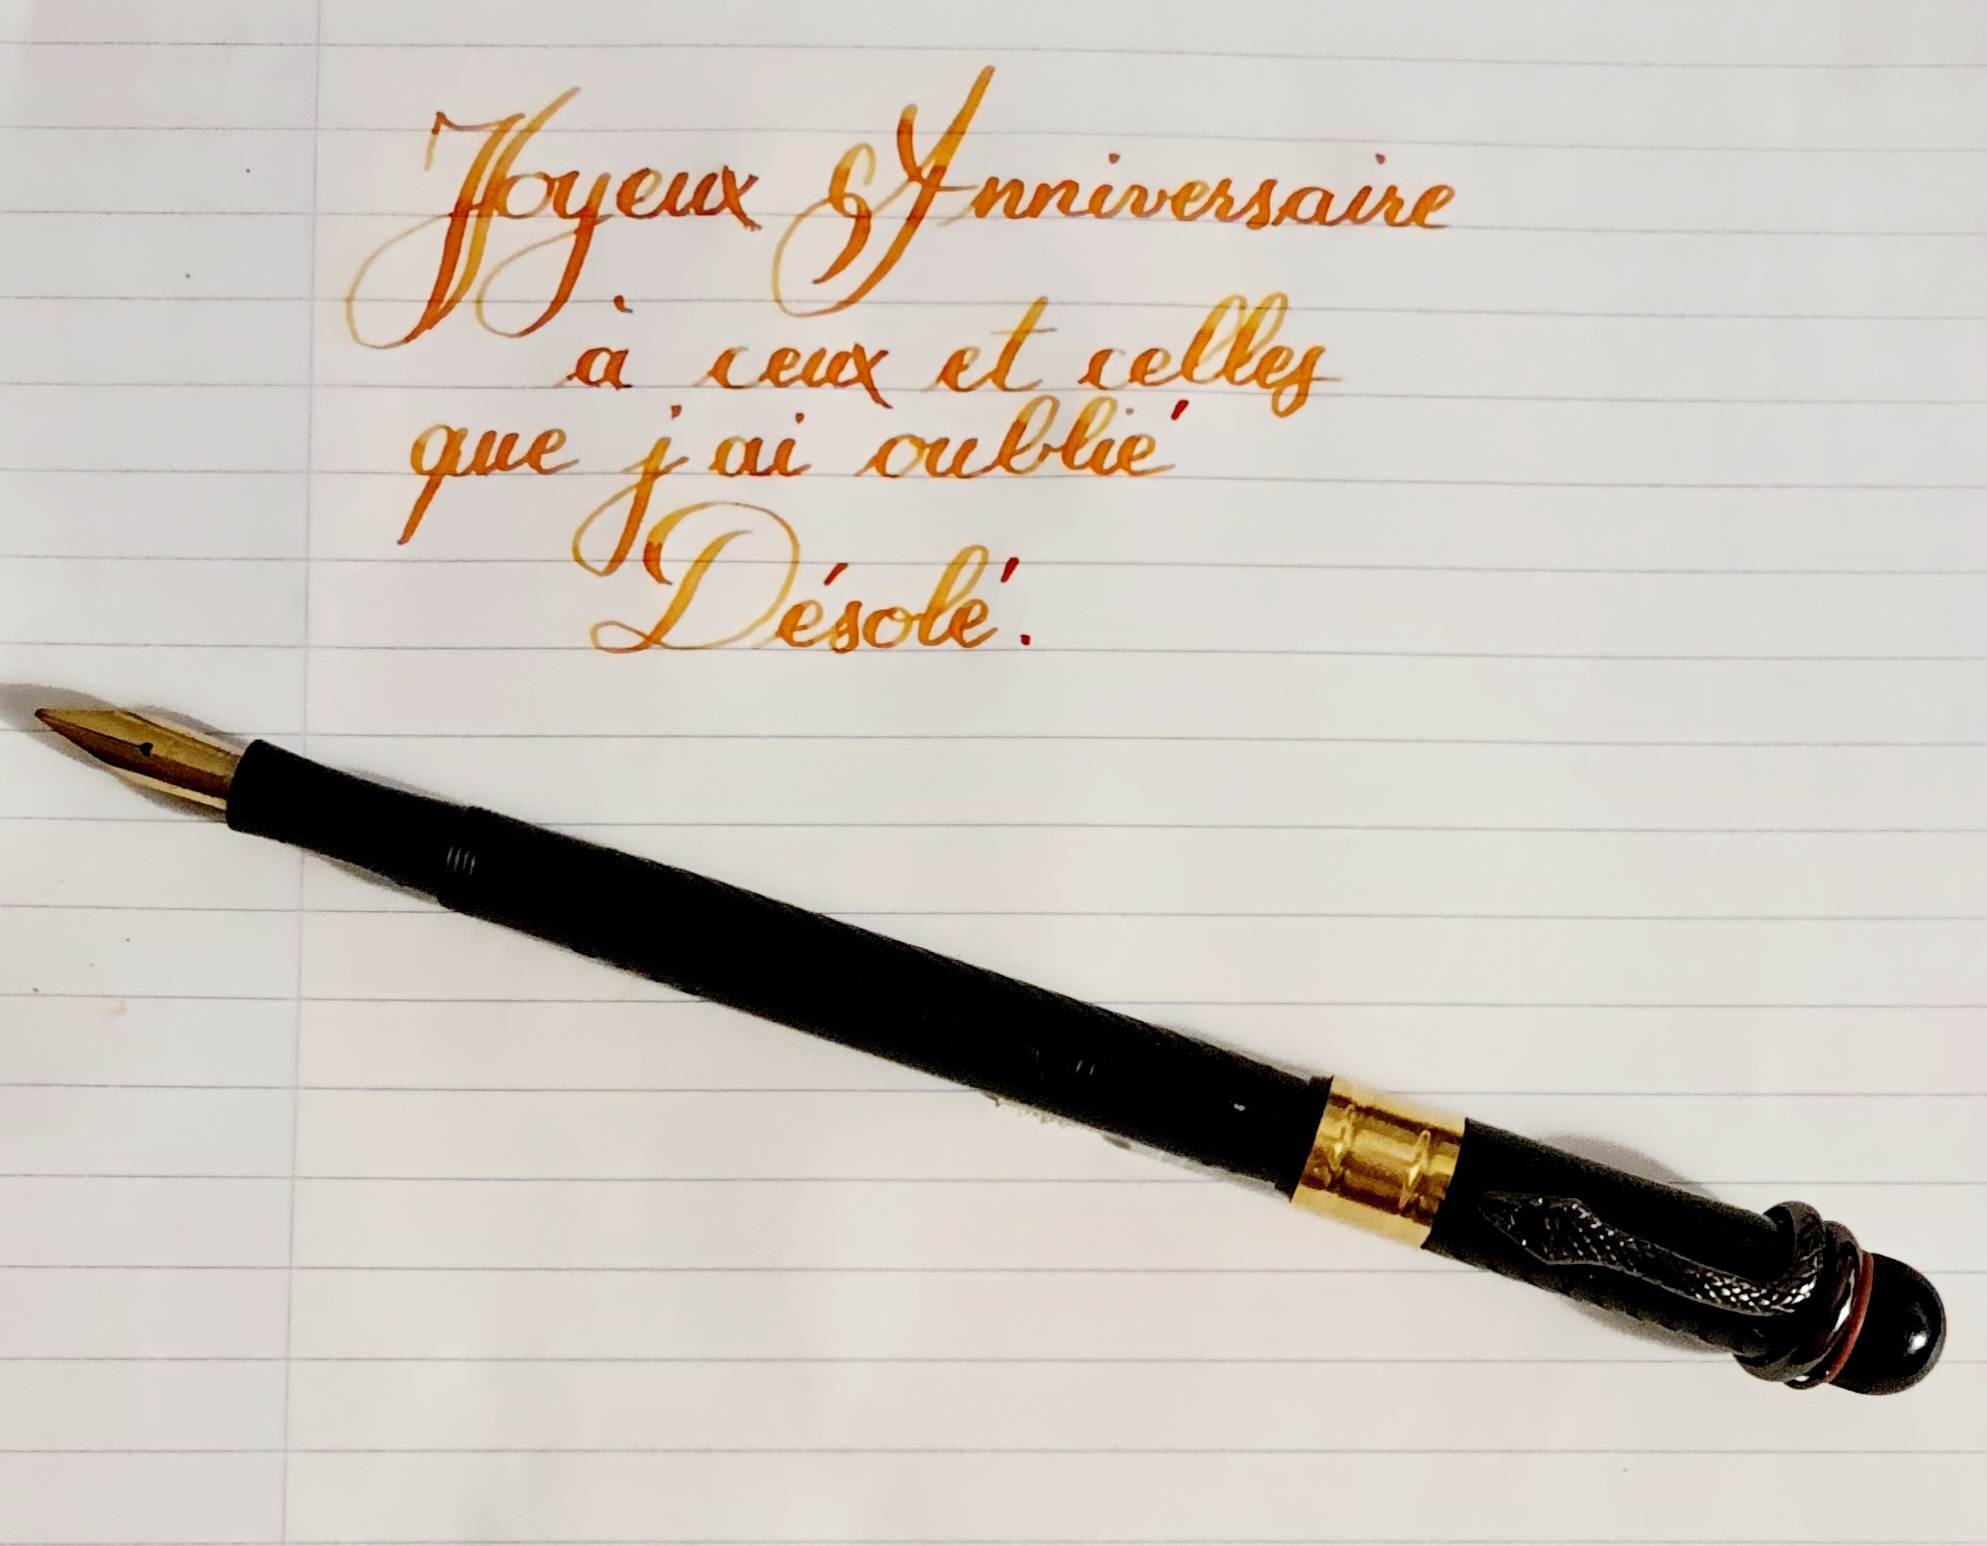 Joyeux Anniversaire
à ceux et celles
que j'ai oublié
Désolé.